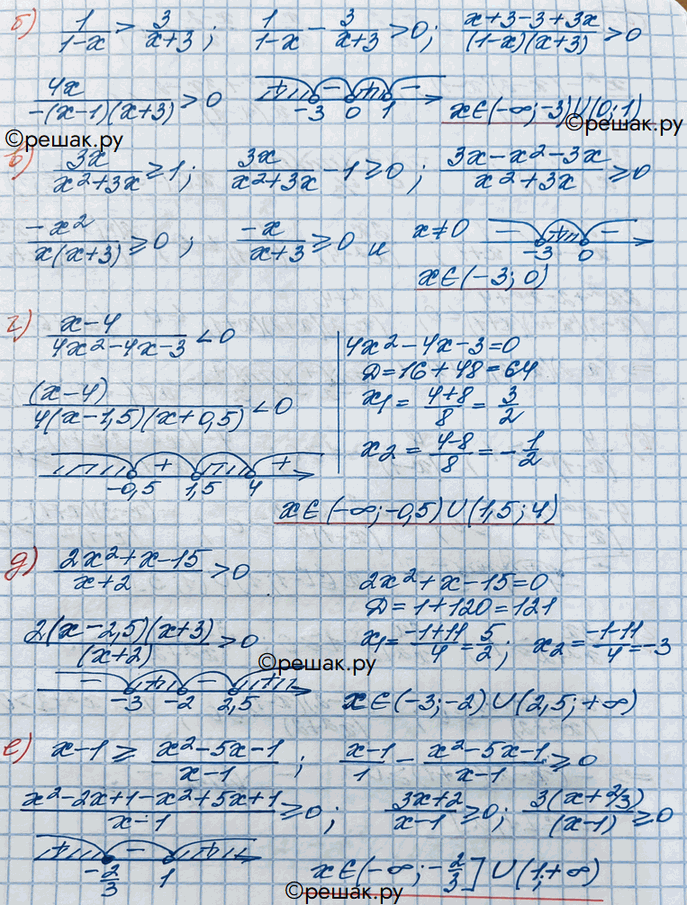 б) 1/(1-x) > 3/(x+3); 1/(1-x) - 3/(x+3) >0; (x+3-3+3x)/((1-x)(x+3)) >0
4x/(-(x-1)(x+3)) >0 + - + - -3 0 1 x∈(-∞;-3)∪(0;1)
©решак.ру ©решак.ру
в) 3x/(x²+3x) ≥1; 3x/(x²+3x) -1≥0; (3x-x²-3x)/(x²+3x) ≥0
-x²/(x(x+3)) ≥0; -x/(x+3) ≥0 и x≠0 - + - -3 0
x∈(-3; 0)
г) (x-4)/(4x²-4x-3) <0 4x²-4x-3=0
Д=16+48=64
(x-4)/(4(x-1,5)(x+0,5)) <0 x1=(4+8)/8=3/2
x2=(4-8)/8=-1/2
- + - + -0,5 1,5 4
x∈(-∞;-0,5)∪(1,5;4)
д) (2x²+x-15)/(x+2) >0 2x²+x-15=0
Д=1+120=121
2(x-2,5)(x+3)/(x+2) >0 x1=(-1+11)/4=5/2; x2=(-1-11)/4=-3
©решак.ру
- + - + -3 -2 2,5 x∈(-3;-2)∪(2,5;+∞)
е) x-1 ≥ (x²-5x-1)/(x-1); (x-1)/1 - (x²-5x-1)/(x-1) ≥0
(x²-2x+1-x²+5x+1)/(x-1) ≥0; (3x+2)/(x-1) ≥0; 3(x+2/3)/(x-1) ≥0
+ - + -2/3 1 x∈(-∞;-2/3]∪(1;+∞)
©решак.ру